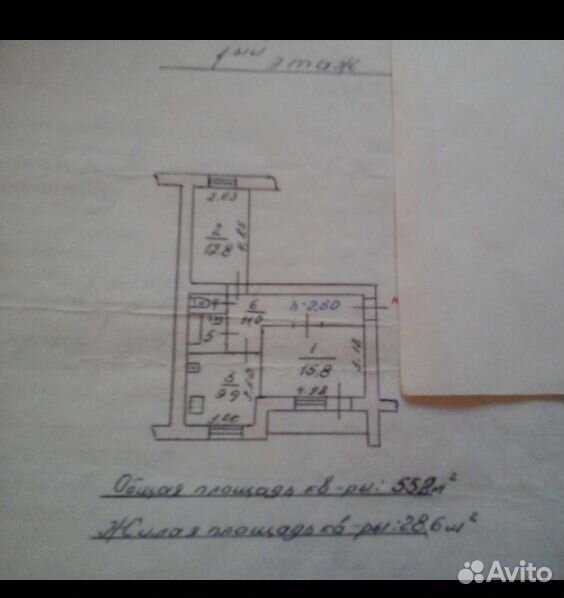 этаж
2.63
2
12.8
4.85
6
11.0
h-2.60
5
1
15.8
3.18
4.98
3
9.9
3.00
Общая площадь кв-ры: 55,2 м²
Жилая площадь кв-ры: 28,6 м²
Avito